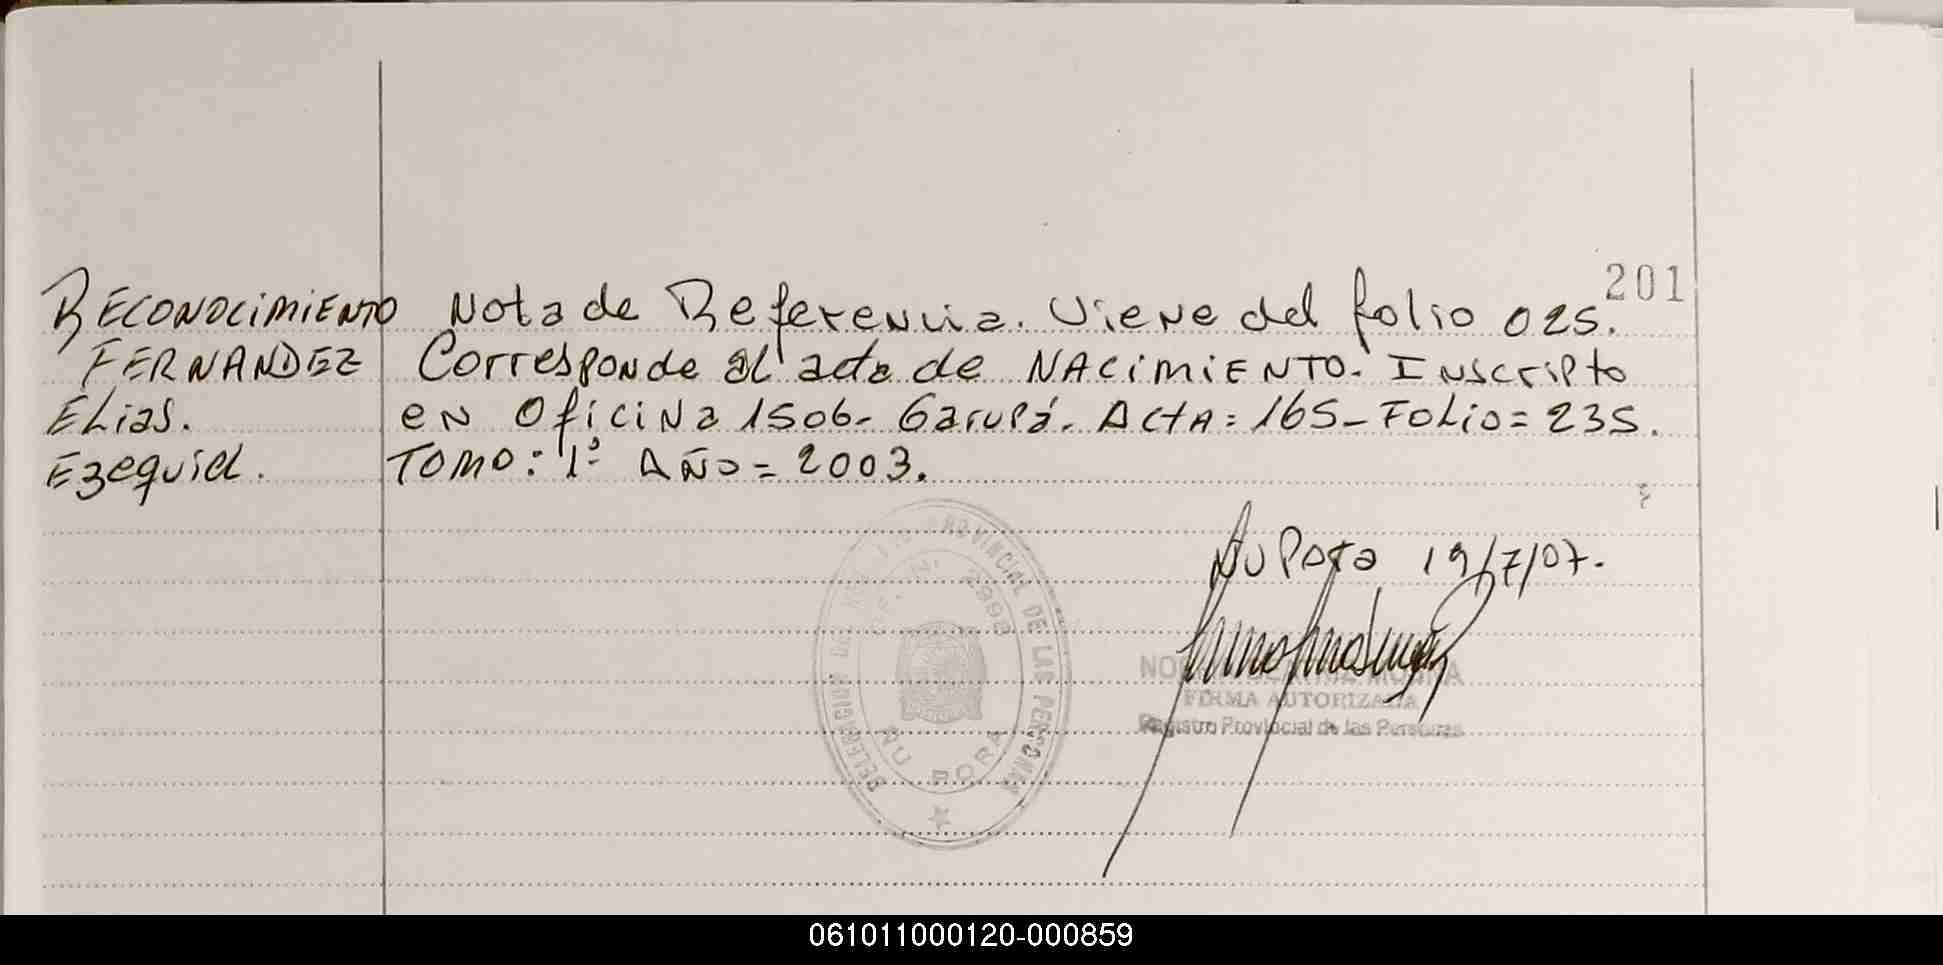 201
RECONOCIMIENTO Nota de Referencia. Viene del folio 025.
FERNANDEZ Corresponde al acta de NACIMIENTO. Inscripto
Elias. en Oficina 1506- Garupá. ACTA: 165- Folio= 235.
Ezequiel. TOMO: 1º AÑO= 2003.
Ñu Pora 19/7/07.
FIRMA AUTORIZADA
Registro Provincial de las Personas
PROVINCIAL DE LAS PERSONAS
2998
ÑU PORA
061011000120-000859